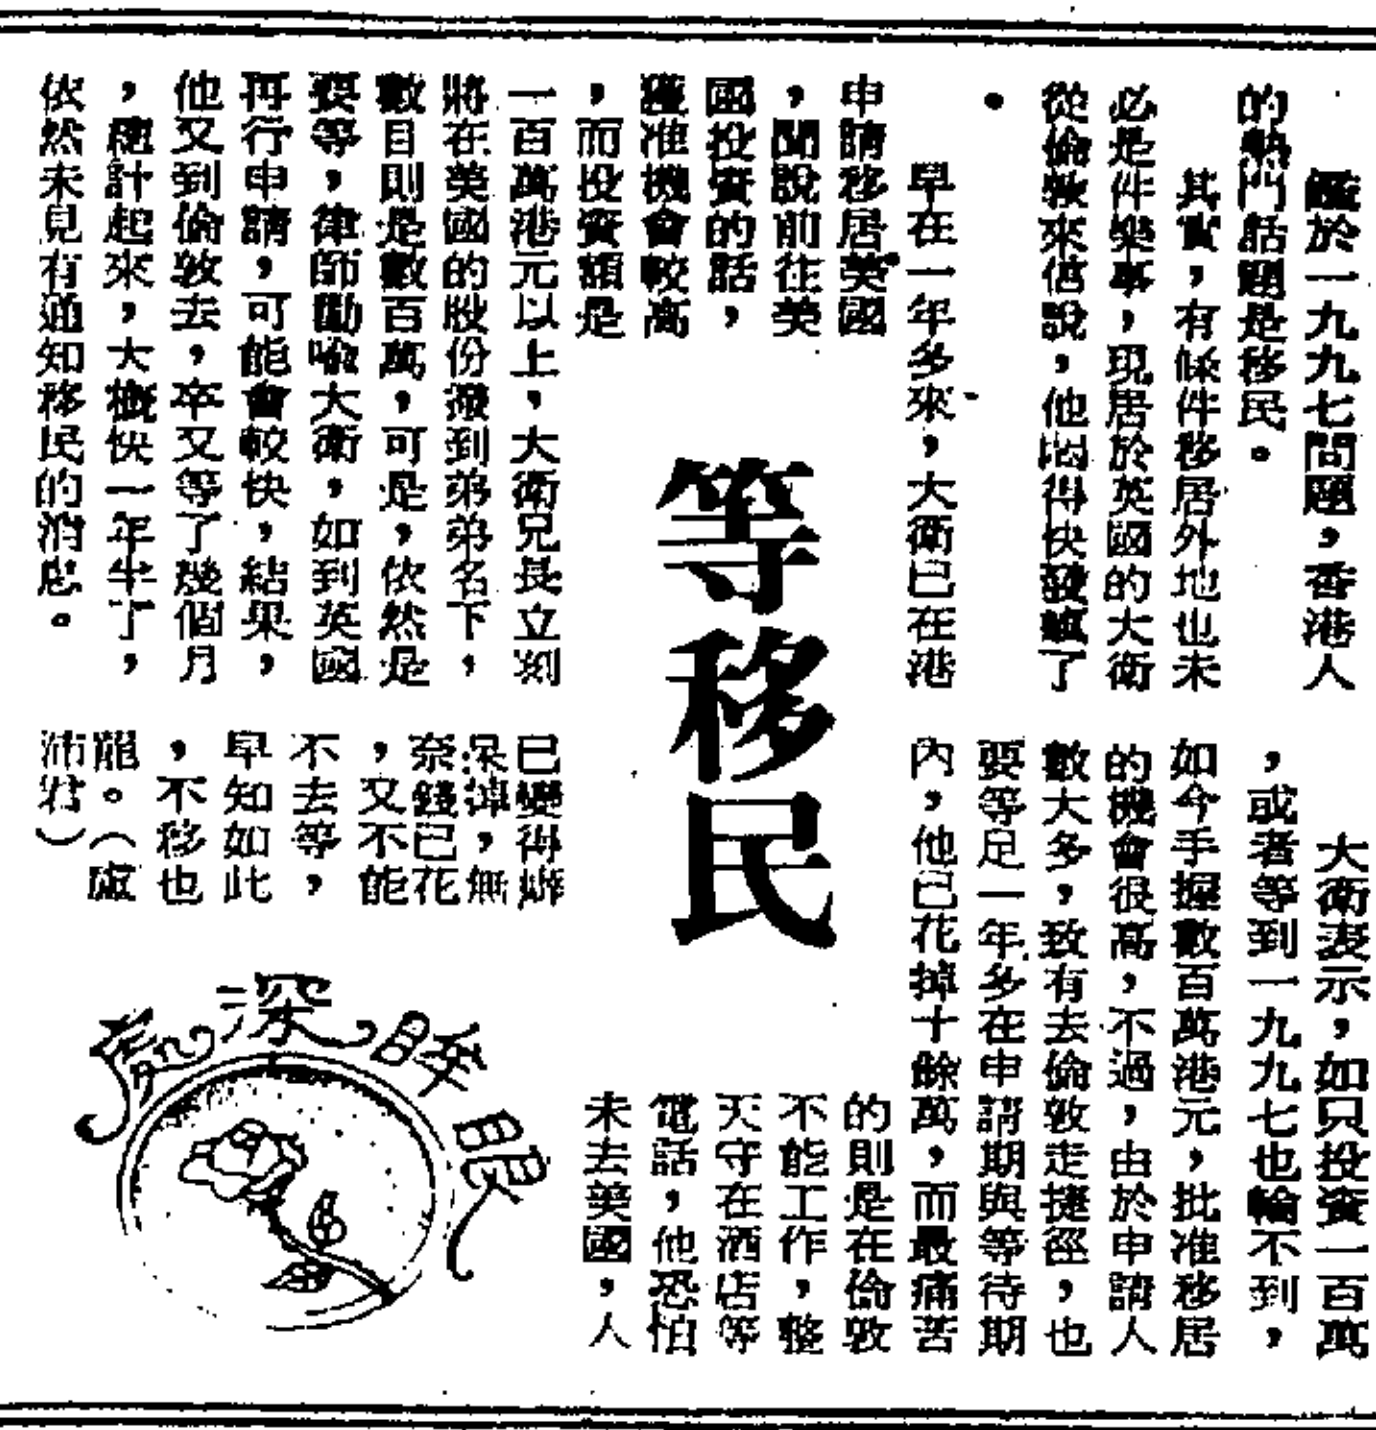 等移民
鑑於一九九七問題，香港人
的熱門話題是移民。
其實，有條件移居外地也未
必是件樂事，現居於英國的大衛
從倫敦來信說，他悶得快發瘋了
。
早在一年多來，大衛已在港
申請移居英國
，聞說前往英
國投資的話，
獲准機會較高
，而投資額是
一百萬港元以上，大衛兄長立刻
將在英國的股份撥到弟弟名下，
數目則是數百萬，可是，依然是
要等，律師勸喻大衛，如到英國
再行申請，可能會較快，結果，
他又到倫敦去，卒又等了幾個月
，總計起來，大概快一年半了，
依然未見有通知移民的消息。
大衛表示，如只投資一百萬
，或者等到一九九七也輪不到，
如今手握數百萬港元，批准移居
的機會很高，不過，由於申請人
數大多，致有去倫敦走捷徑，也
要等足一年多在申請期與等待期
內，他已花掉十餘萬，而最痛苦
的則是在倫敦
不能工作，整
天守在酒店等
電話，他恐怕
未去英國，人
已變得癡
呆掉，無
奈錢已花
，又不能
不去等，
早知如此
，不移也
罷。（盧
沛君）
眼眸深處